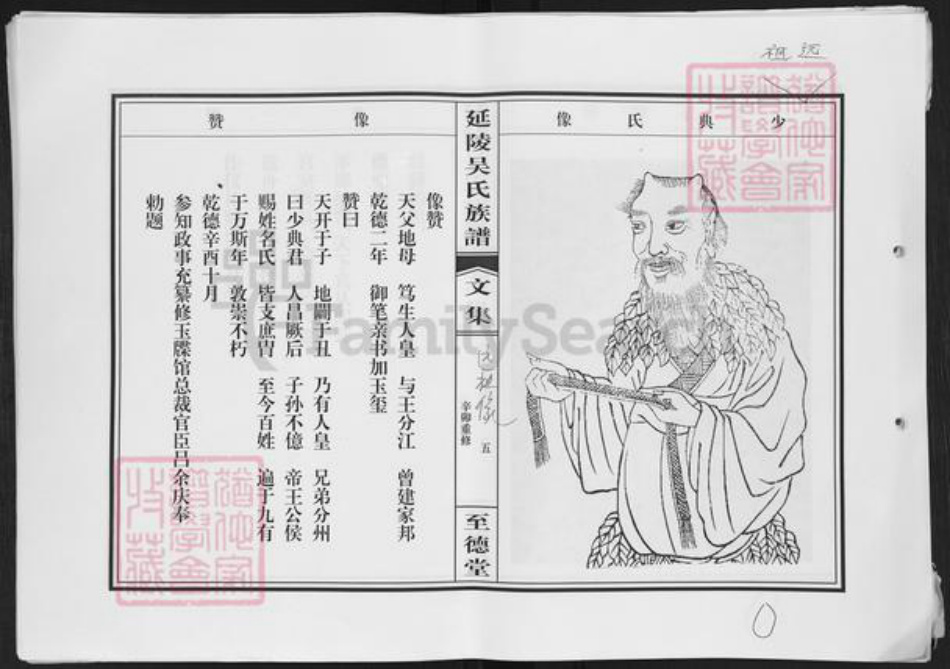 祖 远
少典氏像
延陵吴氏族譜
文集
辛卯重修
五
至德堂
像赞
像赞
天父地母 笃生人皇 与王分江 曾建家邦
乾德二年 御笔亲书加玉玺
赞曰
天开于子 地闢于丑 乃有人皇 兄弟分州
曰少典君 人昌厥后 子孙不億 帝王公侯
赐姓名氏 皆支庶胄 至今百姓 遍于九有
于万斯年 敦崇不朽
乾德辛酉十月
参知政事充纂修玉牒馆总裁官臣吕余庆奉
勅题
FamilySearch